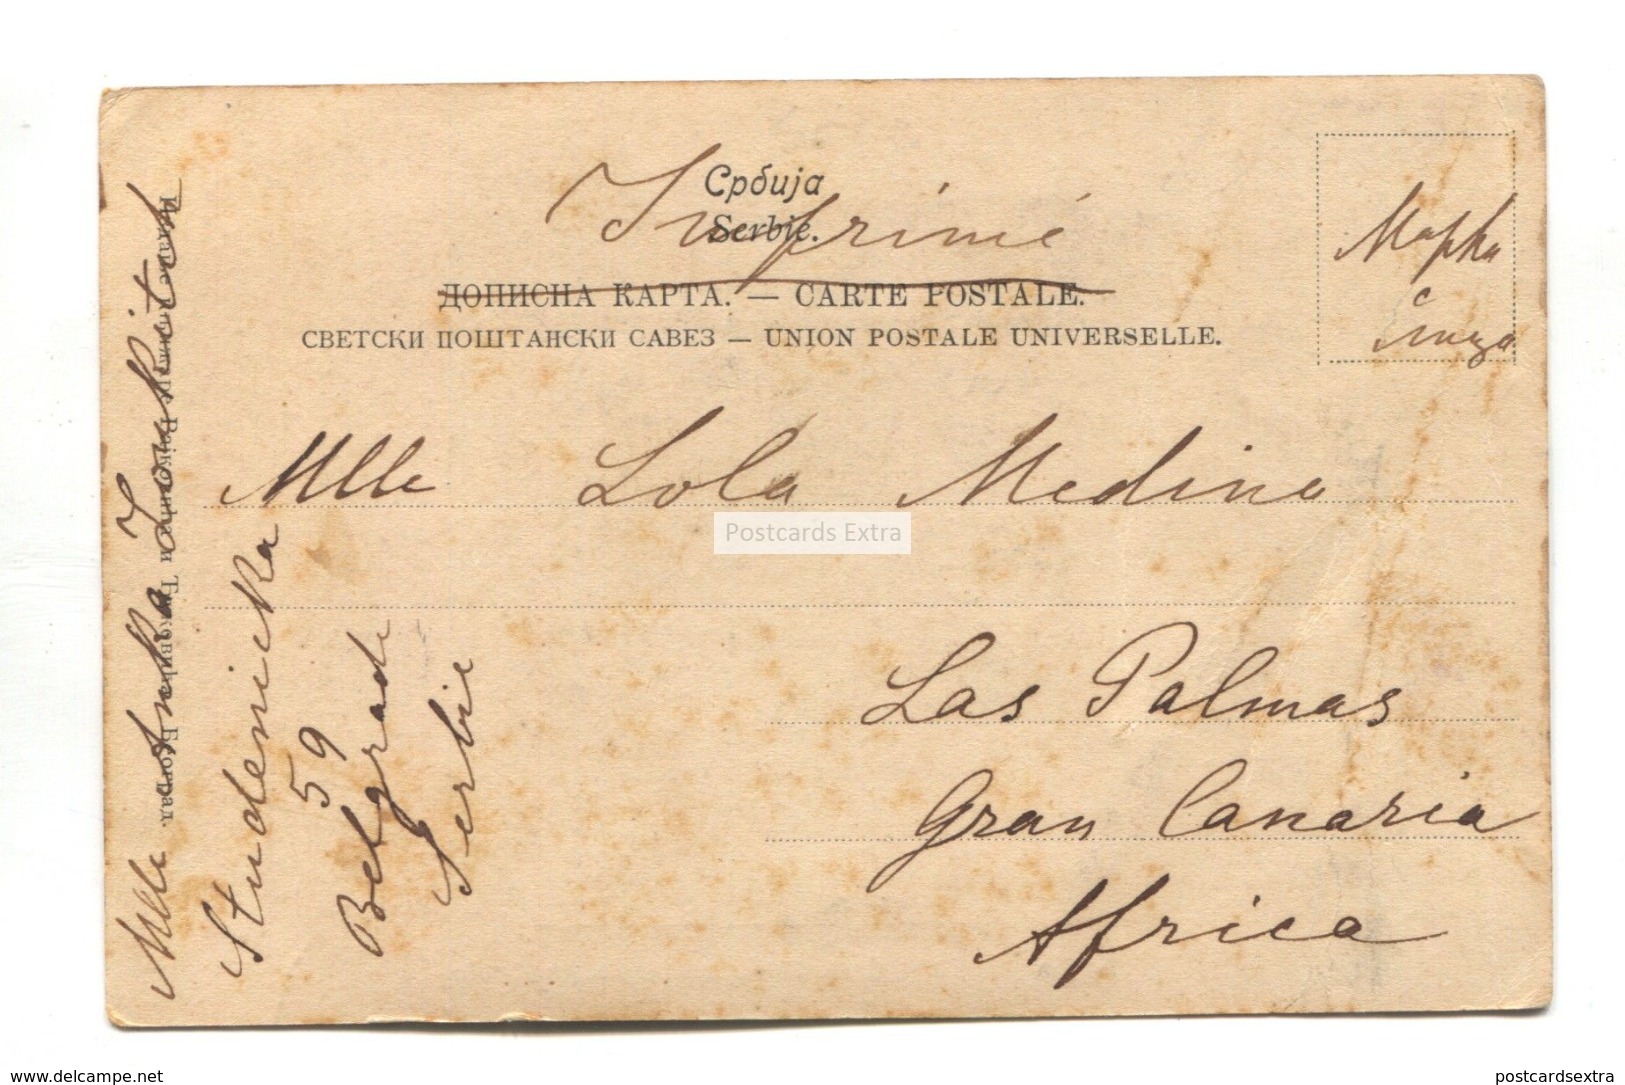 Србија
Serbie.
Imprimé
ДОПИСНА КАРТА. — CARTE POSTALE.
СВЕТСКИ ПОШТАНСКИ САВЕЗ — UNION POSTALE UNIVERSELLE.
Марка
с
лица
Mlle Lola Medina
Postcards Extra
Las Palmas
Gran Canaria
Africa
Mlle Anka
Studenička
59
Belgrade
Serbie
www.delcampe.net
postcardsextra